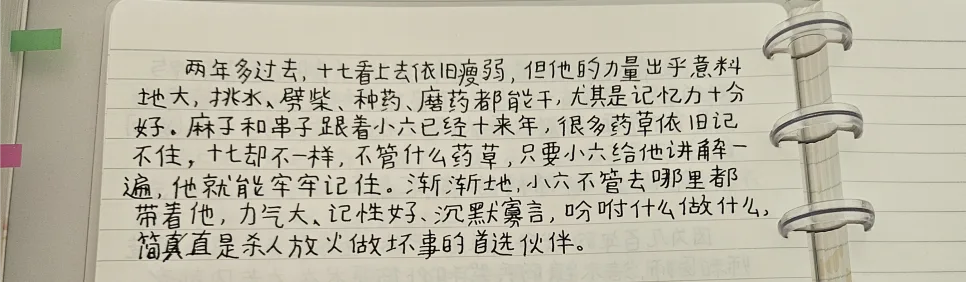 两年多过去，十七看上去依旧瘦弱，但他的力量出乎意料
地大，挑水、劈柴、种药、磨药都能干，尤其是记忆力十分
好。麻子和串子跟着小六已经十来年，很多药草依旧记
不住，十七却不一样，不管什么药草，只要小六给他讲解一
遍，他就能牢牢记住。渐渐地，小六不管去哪里都
带着他，力气大、记性好、沉默寡言，吩咐什么做什么，
简真直是杀人放火做坏事的首选伙伴。